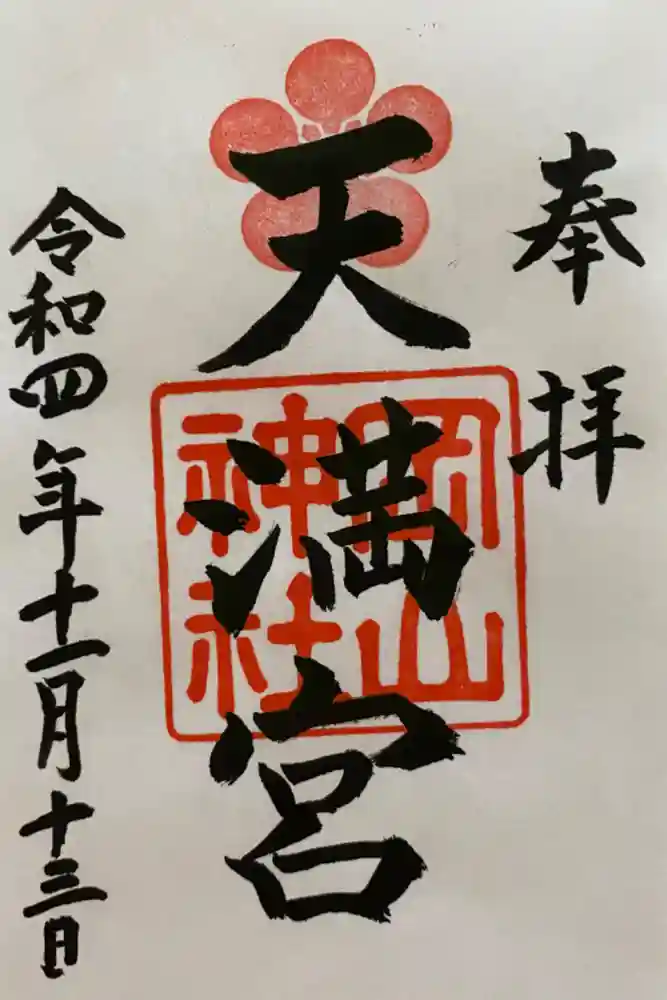 奉拝
天満宮
岡山神社
令和四年十一月十三日